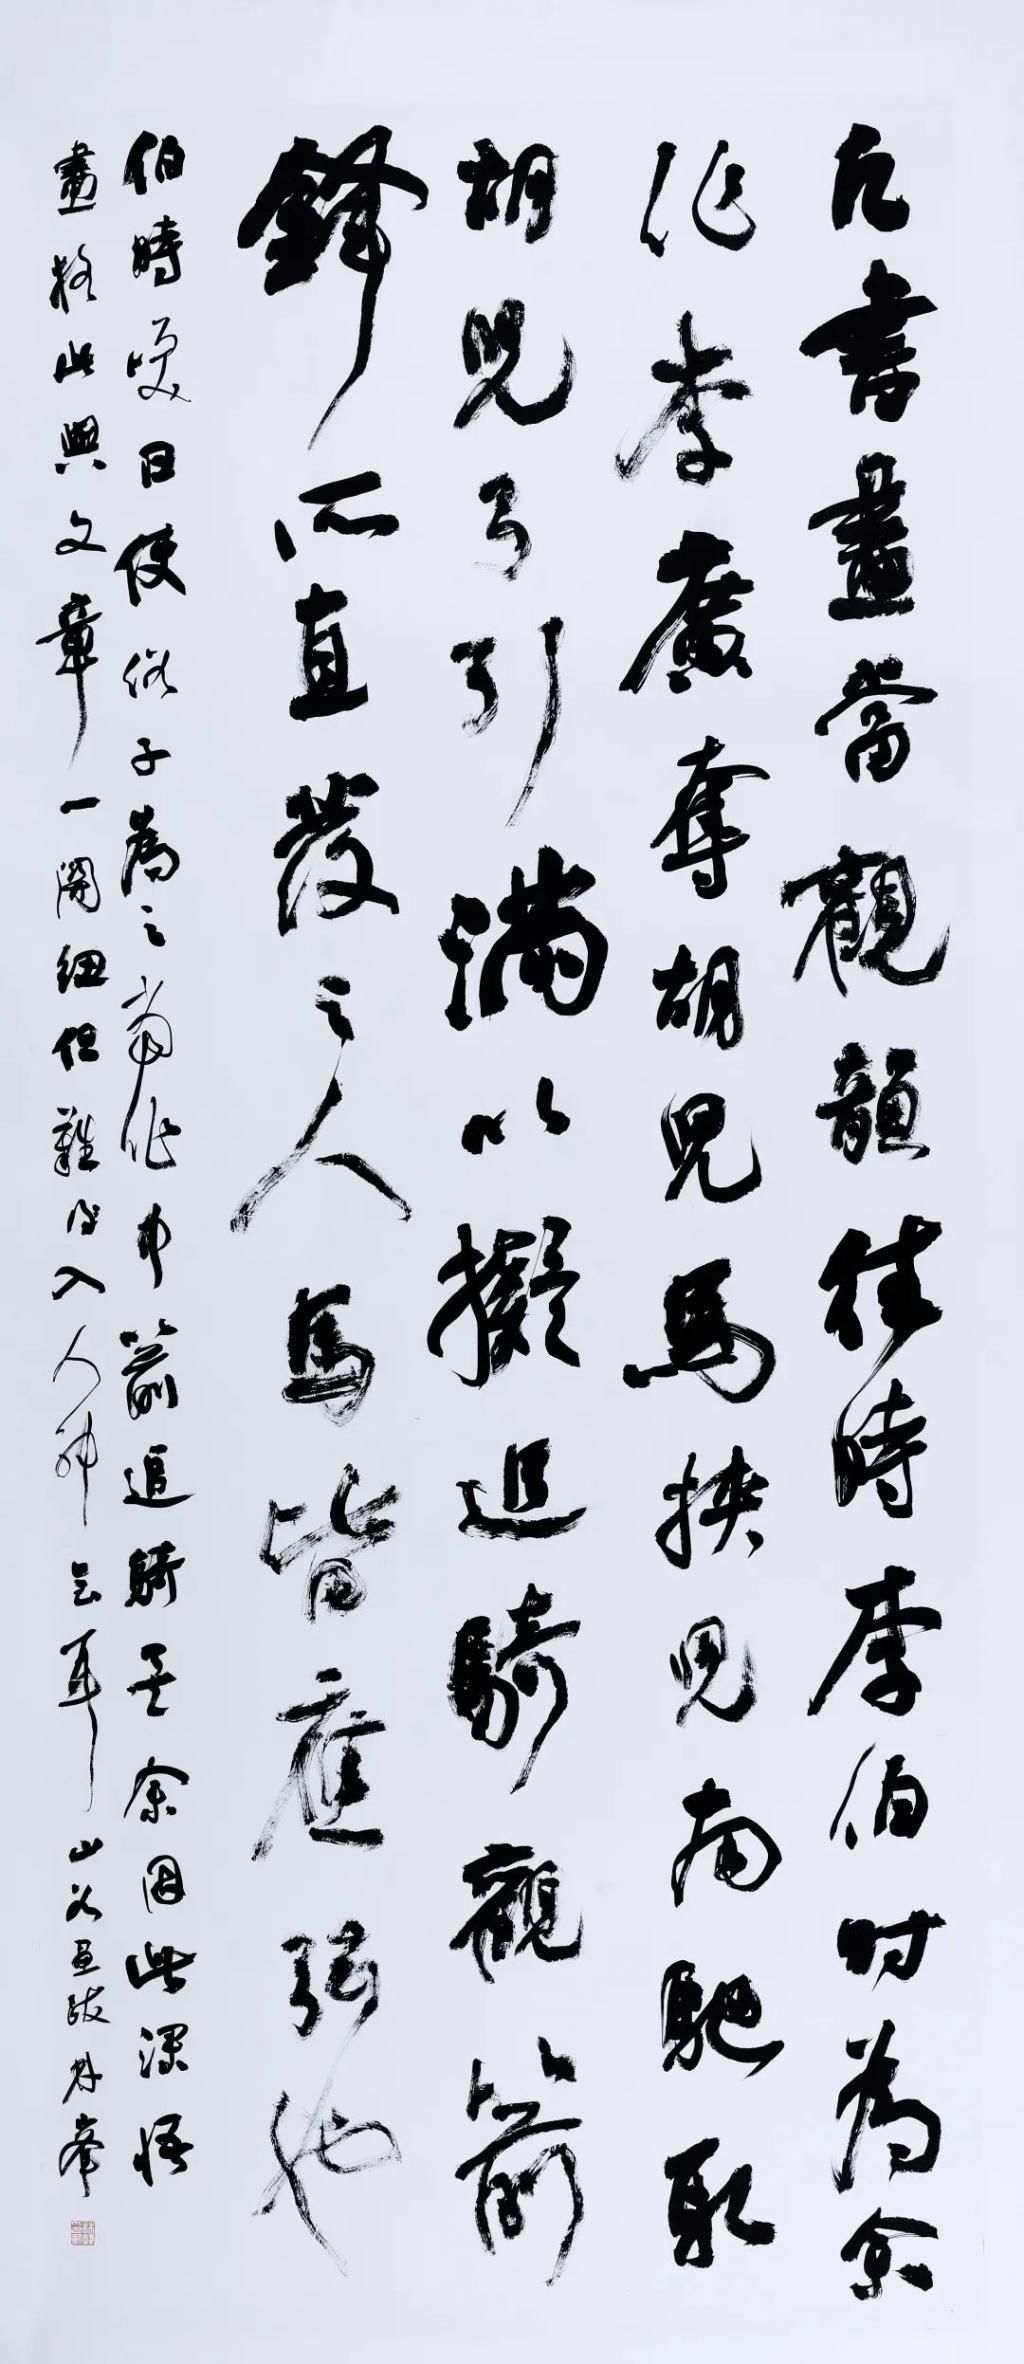 凡書畫當觀韻往時李伯時為余
作李廣奪胡兒馬挾兒南馳取
胡兒弓引滿以擬追騎觀箭
鋒所直發之人馬皆應弦也
伯時笑曰使俗子為之當作中箭追騎矣余因此深悟
畫格此與文章一關紐但難得入人神會耳 山谷画跋 峯